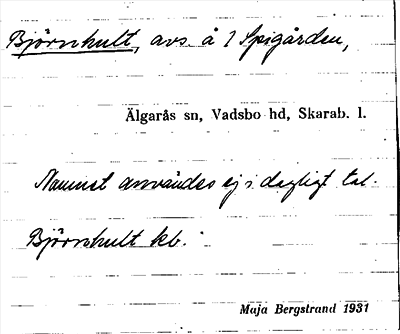 Björnhult, avs. å 1 Spigården,
Älgarås sn, Vadsbo hd, Skarab. l.
Namnet användes ej i dagligt tal.
Björnhult kb.
Maja Bergstrand 1931